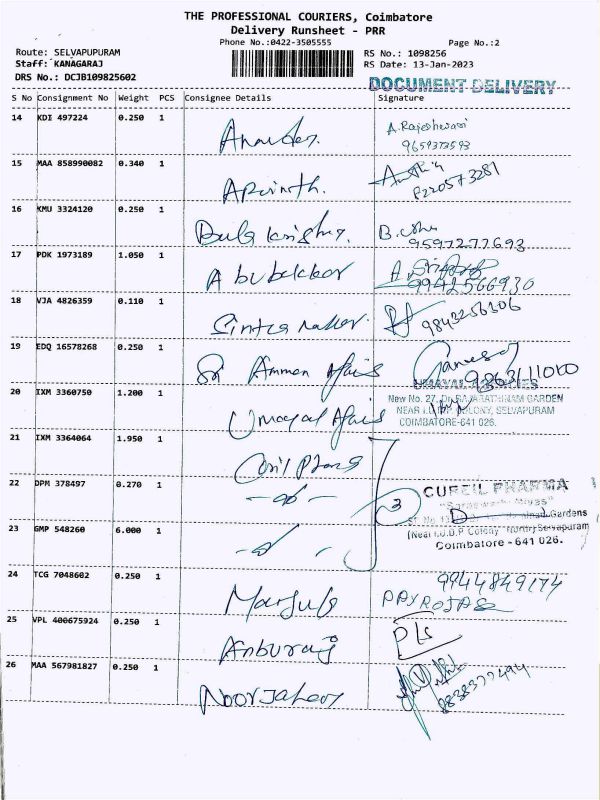 THE PROFESSIONAL COURIERS, Coimbatore
Delivery Runsheet - PRR
Phone No.:0422-3505555
Page No.:2
Route: SELVAPUPURAM
RS No.: 1098256
Staff: KANAGARAJ
RS Date: 13-Jan-2023
DRS No.: DCJB109825602
DOCUMENT DELIVERY
S No Consignment No Weight PCS Consignee Details Signature
14 KDI 497224 0.250 1
A.Rajeshwari
9659373593
15 MAA 858990082 0.340 1 Arvinth.
8220573281
16 KMU 3324120 0.250 1 Bala krishna.
9597277693
17 PDK 1973189 1.050 1 Abubakkar
9942566930
18 VJA 4826359 0.110 1
9843256306
19 EDQ 16578268 0.250 1 Sri Amman Afais
Ganesh
9863111010
20 IXM 3360750 1.200 1 Umayal Afais
New No. 27, Dr. RAJARATHINAM GARDEN
NEAR I.U.D.P COLONY, SELVAPURAM
COIMBATORE-641 026.
21 IXM 3364064 1.950 1
22 DPM 378497 0.270 1 -do-
3
PHARMA
Gardens
(Near I.U.D.P Colony North) Selvapuram
Coimbatore - 641 026.
23 GMP 548260 6.000 1 -do-
24 TCG 7048602 0.250 1 Manjula
9944849174
25 VPL 400675924 0.250 1 Anburaj
26 MAA 567981827 0.250 1 Noorjahan
8838377494